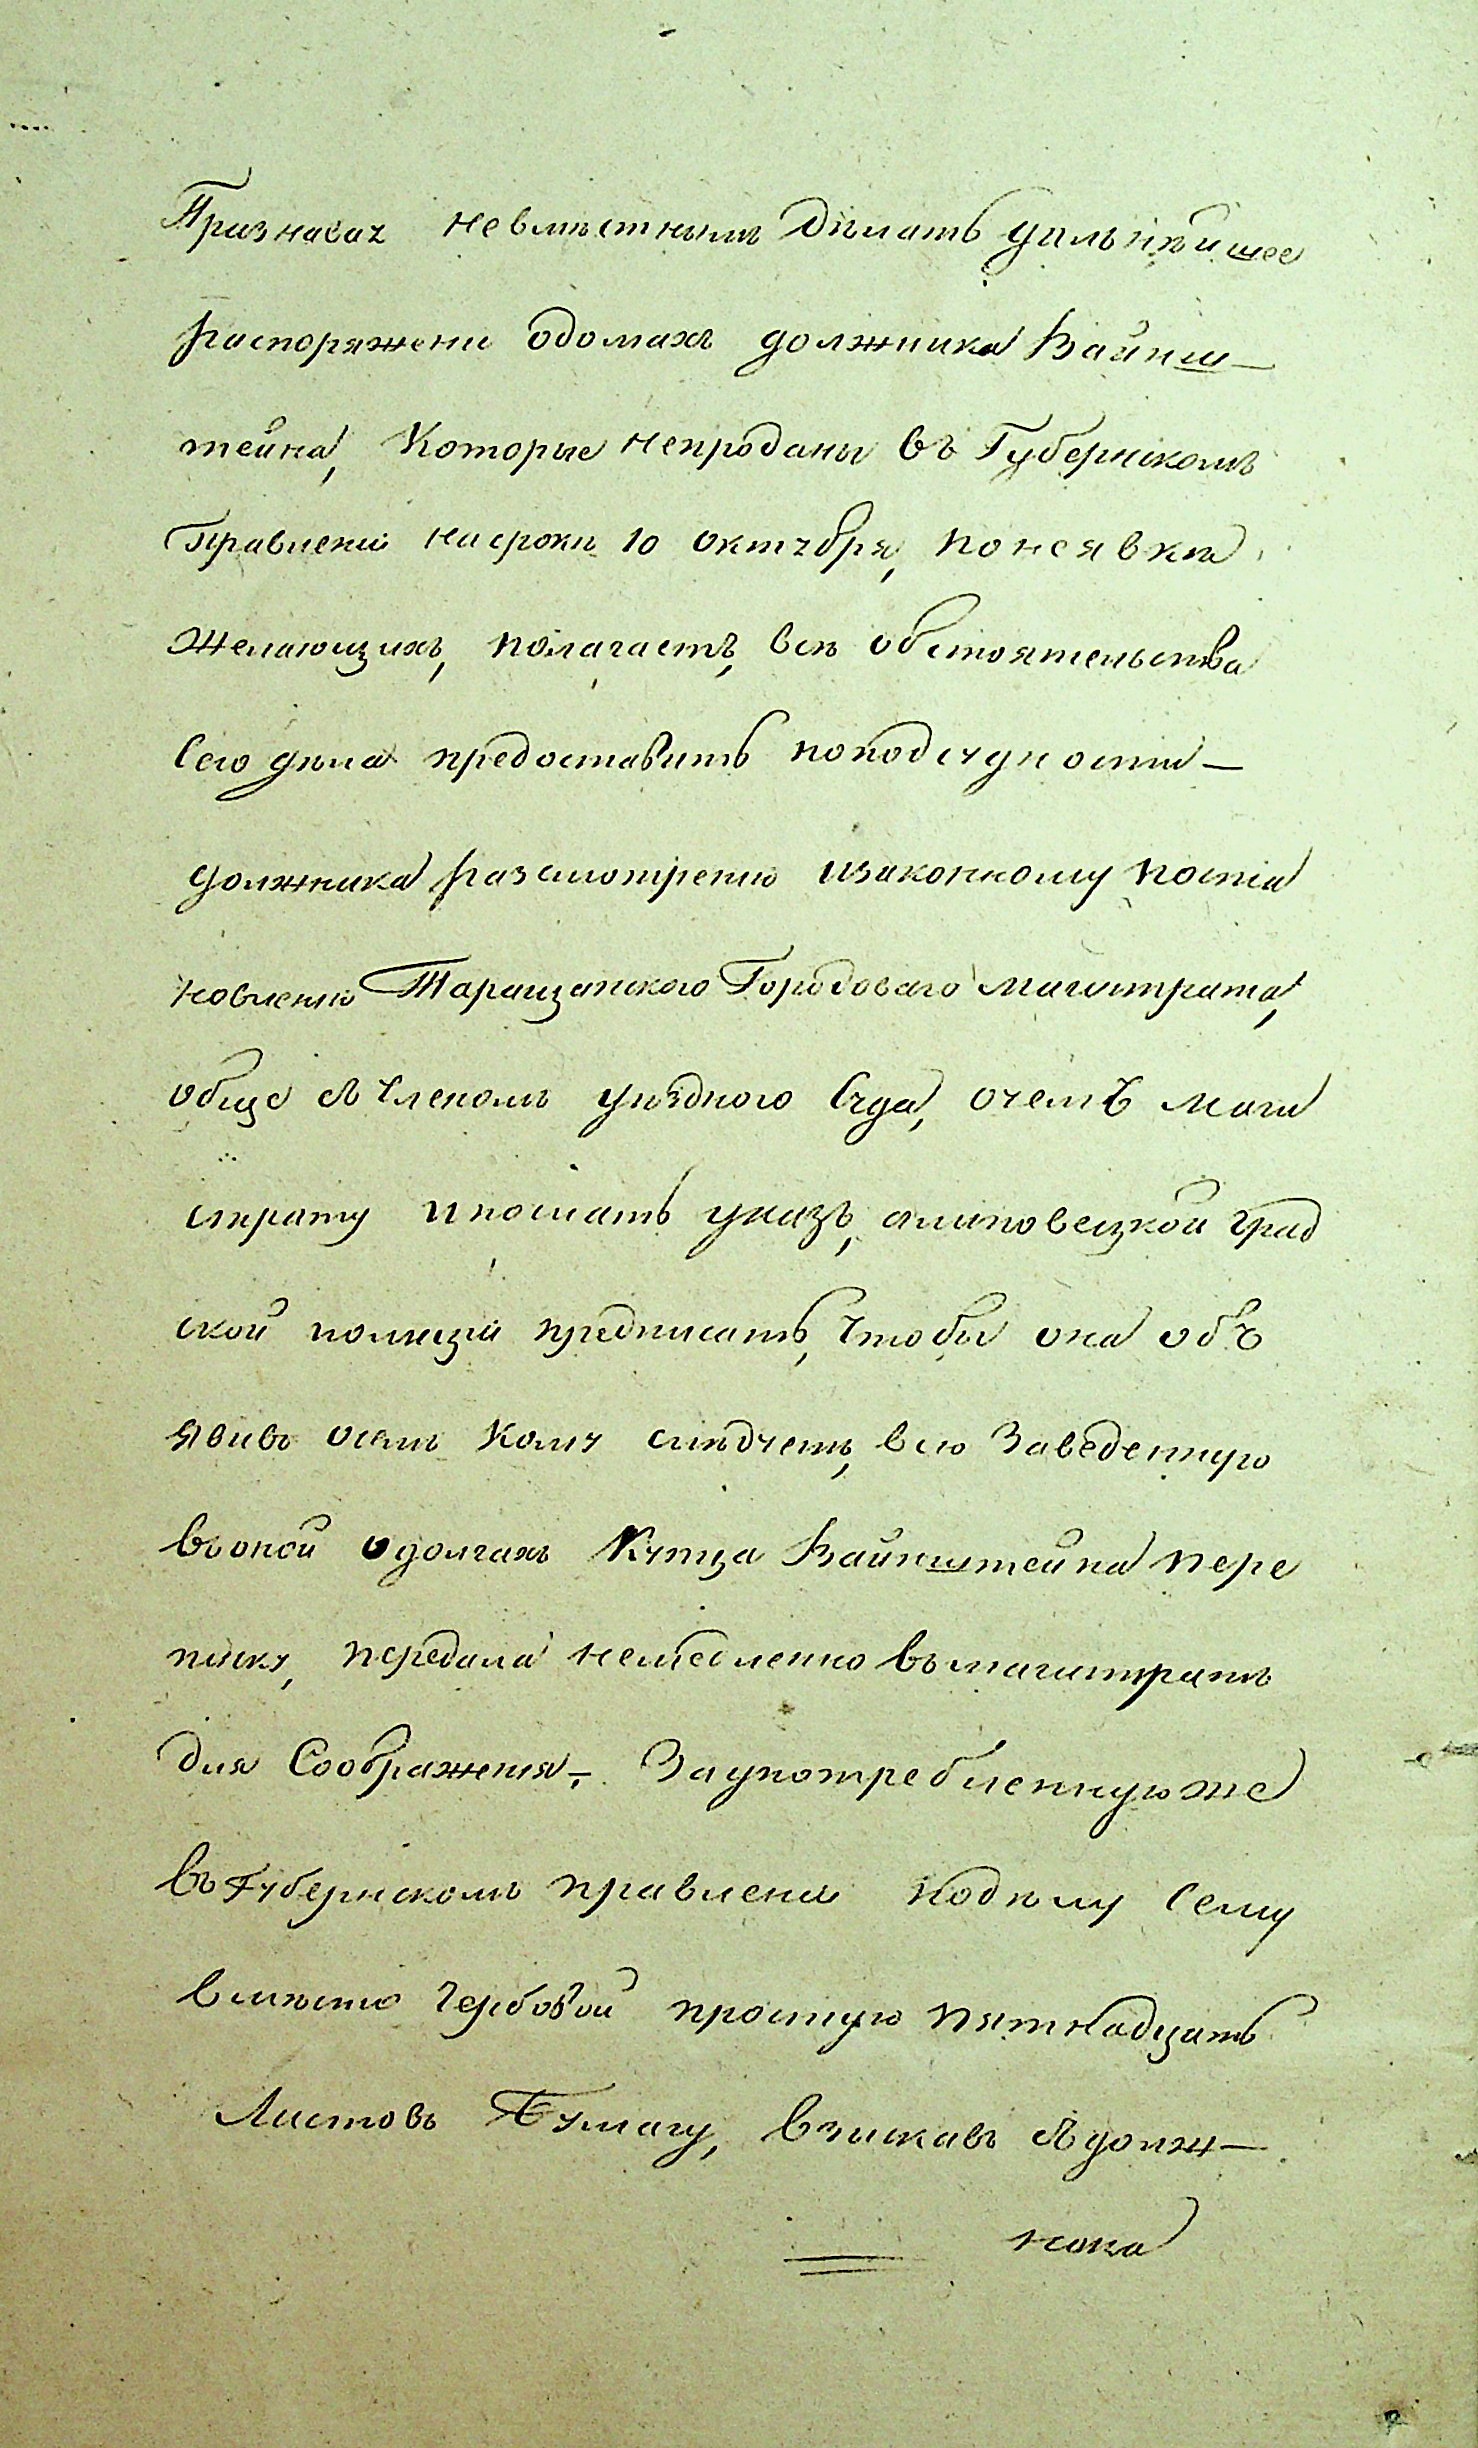 Признавая невместнымъ делать дальнѣйшее
распоряжение одомахъ должника Вайнш-
тейна, которые непроданы въ Губернскомъ
Правлении насроки 10 октября, понеявкѣ
желающихъ, полагаетъ, всѣ обстоятельства
сего дѣла предоставить поподсудности-
должника разсмотрению изаконному поста
новлению Таращанского Городоваго магистрата,
обще съ Членомъ уѣздного Суда, очемъ маги
страту ипослать указъ, алиповецкой град
ской полиции предписать, чтобы она объ
явивъ осемъ кому слѣдуетъ, всю заведенную
въоной о долгахъ Купца Вайнштейна пере
писку, передала немедленно въмагистратъ
для Соображения,- Заупотребленнуюже
въГубернскомъ правлении подѣлу сему
вмѣсто гербовой простую пятнадцать
Листовъ Бумагу, взискавъ съдолж-
ника